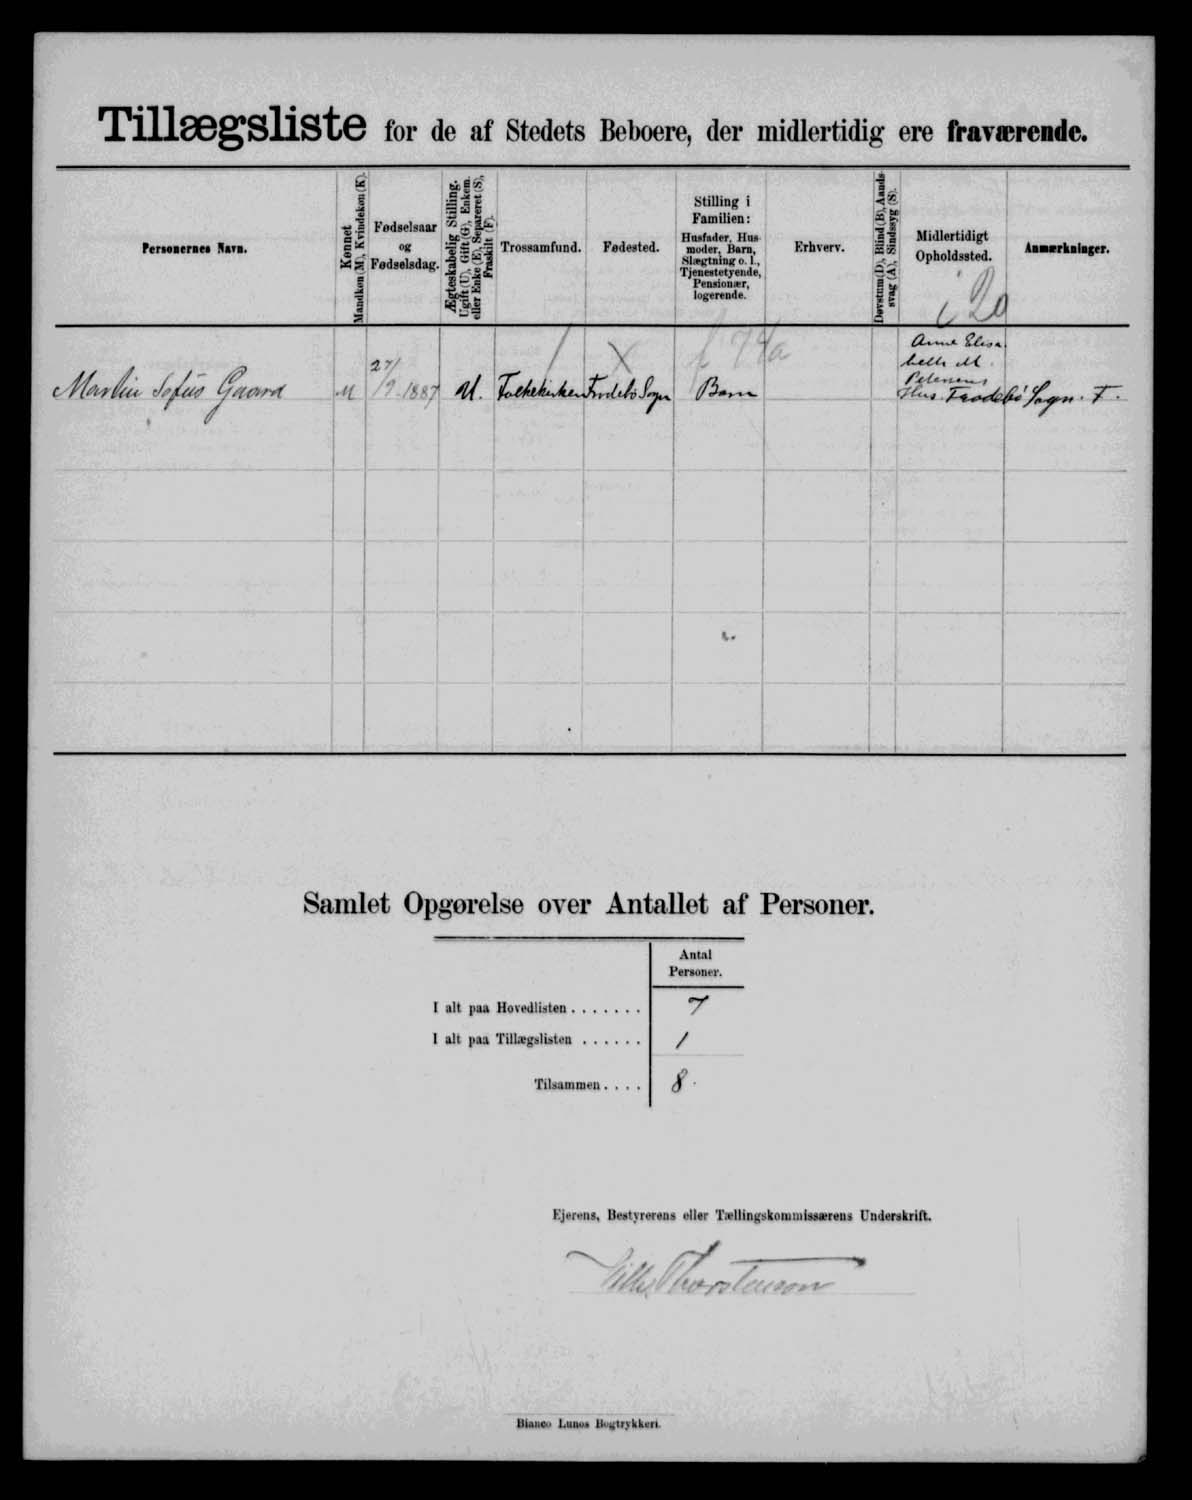 Tillægsliste for de af Stedets Beboere, der midlertidig ere fraværende.
Personernes Navn.
Kønnet
Mandkøn (M), Kvindekøn (K).
Fødselsaar
og
Fødselsdag.
Ægteskabelig Stilling.
Ugift (U), Gift (G), Enkem.
eller Enke (E), Separeret (S),
Fraskilt (F).
Trossamfund.
Fødested.
Stilling i
Familien:
Husfader, Hus-
moder, Barn,
Slægtning o. l.,
Tjenestetyende,
Pensionær,
logerende.
Erhverv.
Døvstum (D), Blind (B), Aands-
svag (A), Sindssyg (S).
Midlertidigt
Opholdssted.
Anmærkninger.
Martin Sofus Gaard
M
27/9 1887
U.
Folkekirken
Frodebö Sogn
Barn
Anne Elisa
beth M.
Petersens
Hus. Frodebö Sogn. F.
Samlet Opgørelse over Antallet af Personer.
Antal
Personer.
I alt paa Hovedlisten . . . . . . . 7
I alt paa Tillægslisten . . . . . . 1
Tilsammen . . . . 8.
Ejerens, Bestyrerens eller Tællingskommissærens Underskrift.
Thorstenson
Bianco Lunos Bogtrykkeri.